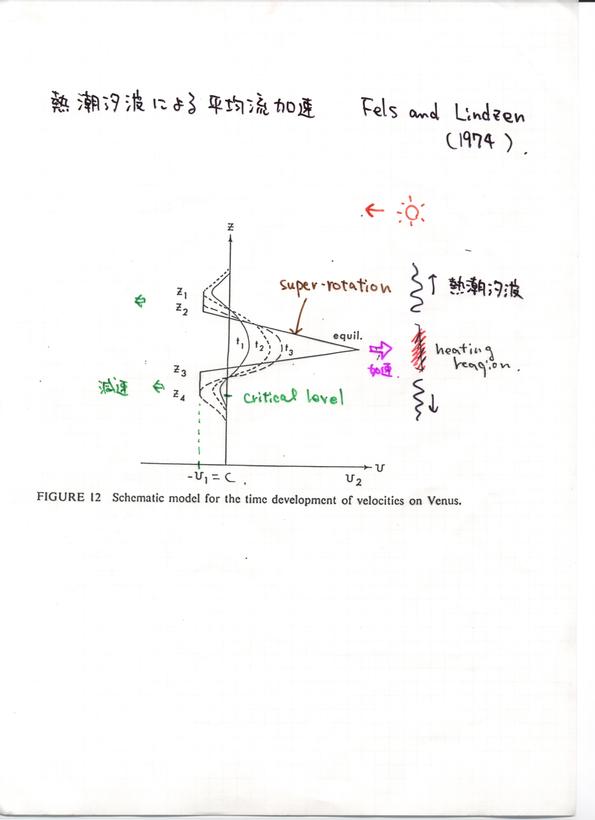 熱潮汐波による平均流加速 Fels and Lindzen
(1974).
z
super-rotation
熱潮汐波
z₁
z₂
equil.
t₁ t₂ t₃
heating
reagion.
加速
z₃
減速
z₄
critical level
-υ₁ = C.
υ₂
υ
FIGURE 12 Schematic model for the time development of velocities on Venus.